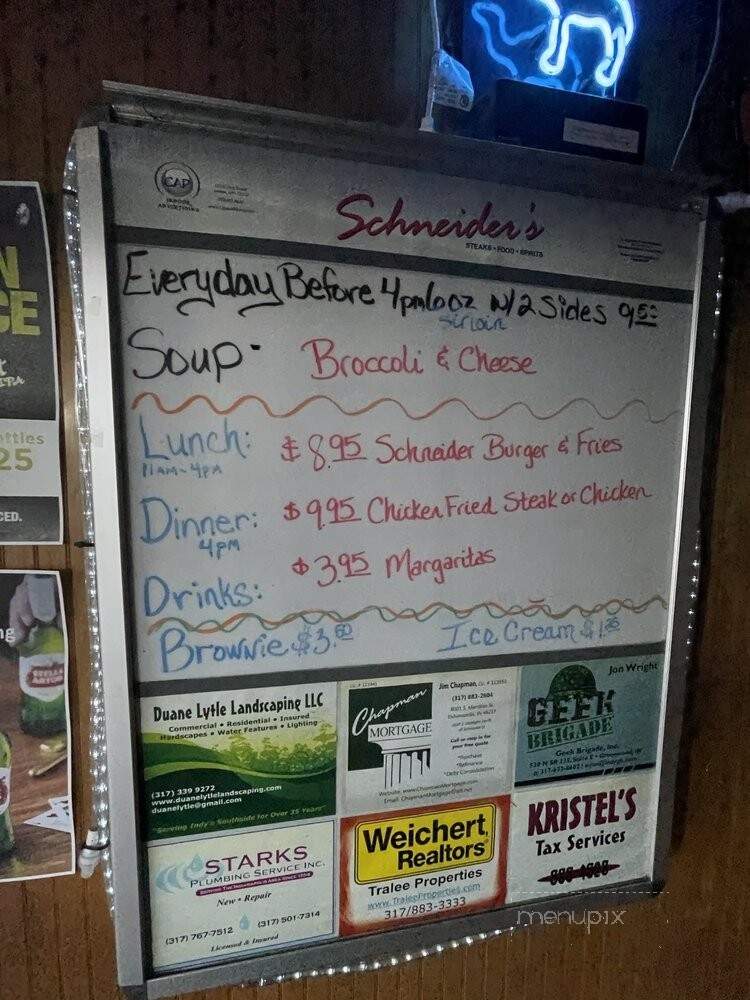 CAP
INDOOR
ADVERTISING
Schneider's
STEAKS • FOOD • SPIRITS
Everyday Before 4pm 6oz w/2 Sides 9.50
Sirloin
Soup - Broccoli & Cheese
Lunch: $8.95 Schneider Burger & Fries
11AM-4PM
Dinner: $9.95 Chicken Fried Steak or Chicken
4pm
Drinks: $3.95 Margaritas
Brownie $3.50 Ice Cream $1.25
N
CE
25
CED.
ng
STELLA
ARTOIS
Duane Lytle Landscaping LLC
Commercial • Residential • Insured
Hardscapes • Water Features • Lighting
(317) 339 9272
www.duanelytlelandscaping.com
duanelytle@gmail.com
"Serving Indy's Southside for Over 35 Years"
Jim Chapman,
(317) 883-2604
Chapman
MORTGAGE
Call or stop in for
your free quote
*Purchase
*Refinance
*Debt Consolidation
Website: www.ChapmanMortgage.com
Jon Wright
GEEK
BRIGADE
Geek Brigade, Inc.
STARKS
PLUMBING SERVICE INC.
SERVING THE INDIANAPOLIS AREA SINCE 1954
New • Repair
(317) 767-7512 (317) 501-7314
Licensed & Insured
Weichert
Realtors
Tralee Properties
www.TraleeProperties.com
317/883-3333
KRISTEL'S
Tax Services
menupix